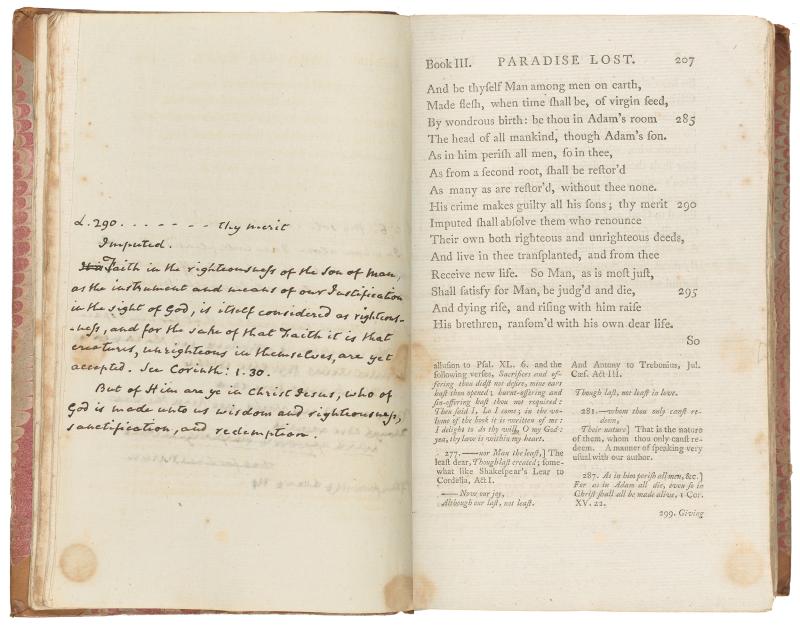 L. 290. - - - - - - thy merit
Imputed.
Faith in the righteousness of the Son of Man,
as the instrument and means of our Justification
in the sight of God, is itself considered as righteous-
-ness, and for the sake of that Faith it is that
creatures, unrighteous in themselves, are yet
accepted. See Corinth: 1.30.
But of Him are ye in Christ Jesus, who of
God is made unto us wisdom and righteousness,
sanctification, and redemption.
Book III. PARADISE LOST. 207
And be thyſelf Man among men on earth,
Made fleſh, when time ſhall be, of virgin ſeed,
By wondrous birth: be thou in Adam's room 285
The head of all mankind, though Adam's ſon.
As in him periſh all men, ſo in thee,
As from a ſecond root, ſhall be reſtor'd
As many as are reſtor'd, without thee none.
His crime makes guilty all his ſons; thy merit 290
Imputed ſhall abſolve them who renounce
Their own both righteous and unrighteous deeds,
And live in thee tranſplanted, and from thee
Receive new life. So Man, as is moſt juſt,
Shall ſatisfy for Man, be judg'd and die, 295
And dying riſe, and riſing with him raiſe
His brethren, ranſom'd with his own dear life.
So
alluſion to Pſal. XL. 6. and the
following verſes, Sacrifices and of-
fering thou didſt not deſire, mine ears
haſt thou opened; burnt-offering and
ſin-offering haſt thou not required:
Then ſaid I, Lo I come; in the vo-
lume of the book it is written of me:
I delight to do thy will, O my God:
yea, thy law is within my heart.
277. —nor Man the leaſt,] The
leaſt dear, Though laſt created; ſome-
what like Shakeſpear's Lear to
Cordelia, Act I.
—Now our joy,
Although our laſt, not leaſt.
And Antony to Trebonius, Jul.
Cæſ. Act III.
Though laſt, not leaſt in love.
281.—whom thou only canſt re-
deem,
Their nature] That is the nature
of them, whom thou only canſt re-
deem. A manner of ſpeaking very
uſual with our author.
287. As in him periſh all men, &c.]
For as in Adam all die, even ſo in
Chriſt ſhall all be made alive, 1 Cor.
XV. 22.
299. Giving